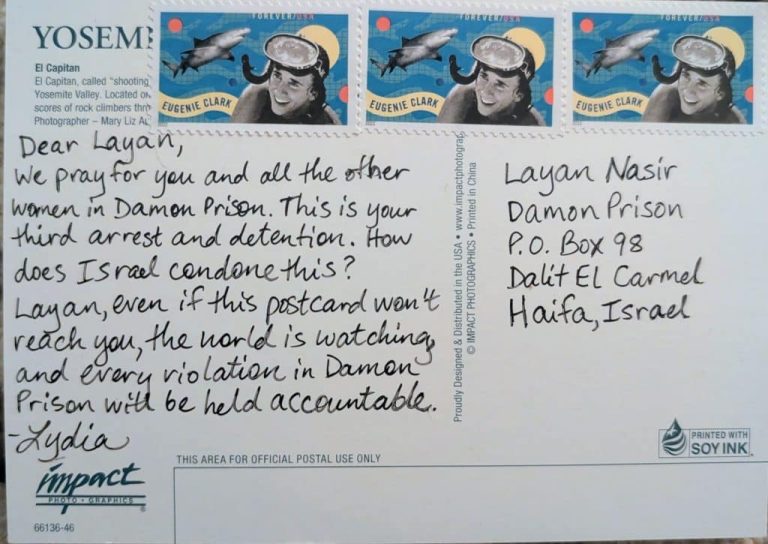 YOSEMI
El Capitan
El Capitan, called "shooting
Yosemite Valley. Located on
scores of rock climbers thro
Photographer – Mary Liz Au
FOREVER/USA
EUGENIE CLARK
FOREVER/USA
EUGENIE CLARK
FOREVER/USA
EUGENIE CLARK
Dear Layan,
We pray for you and all the other
women in Damon Prison. This is your
third arrest and detention. How
does Israel condone this?
Layan, even if this postcard won't
reach you, the world is watching,
and every violation in Damon
Prison will be held accountable.
-Lydia
impact
PHOTO • GRAPHICS
66136-46
Proudly Designed & Distributed in the USA • www.impactphotograp
© IMPACT PHOTOGRAPHICS • Printed in China
Layan Nasir
Damon Prison
P.O. Box 98
Dalit El Carmel
Haifa, Israel
PRINTED WITH
SOY INK
THIS AREA FOR OFFICIAL POSTAL USE ONLY